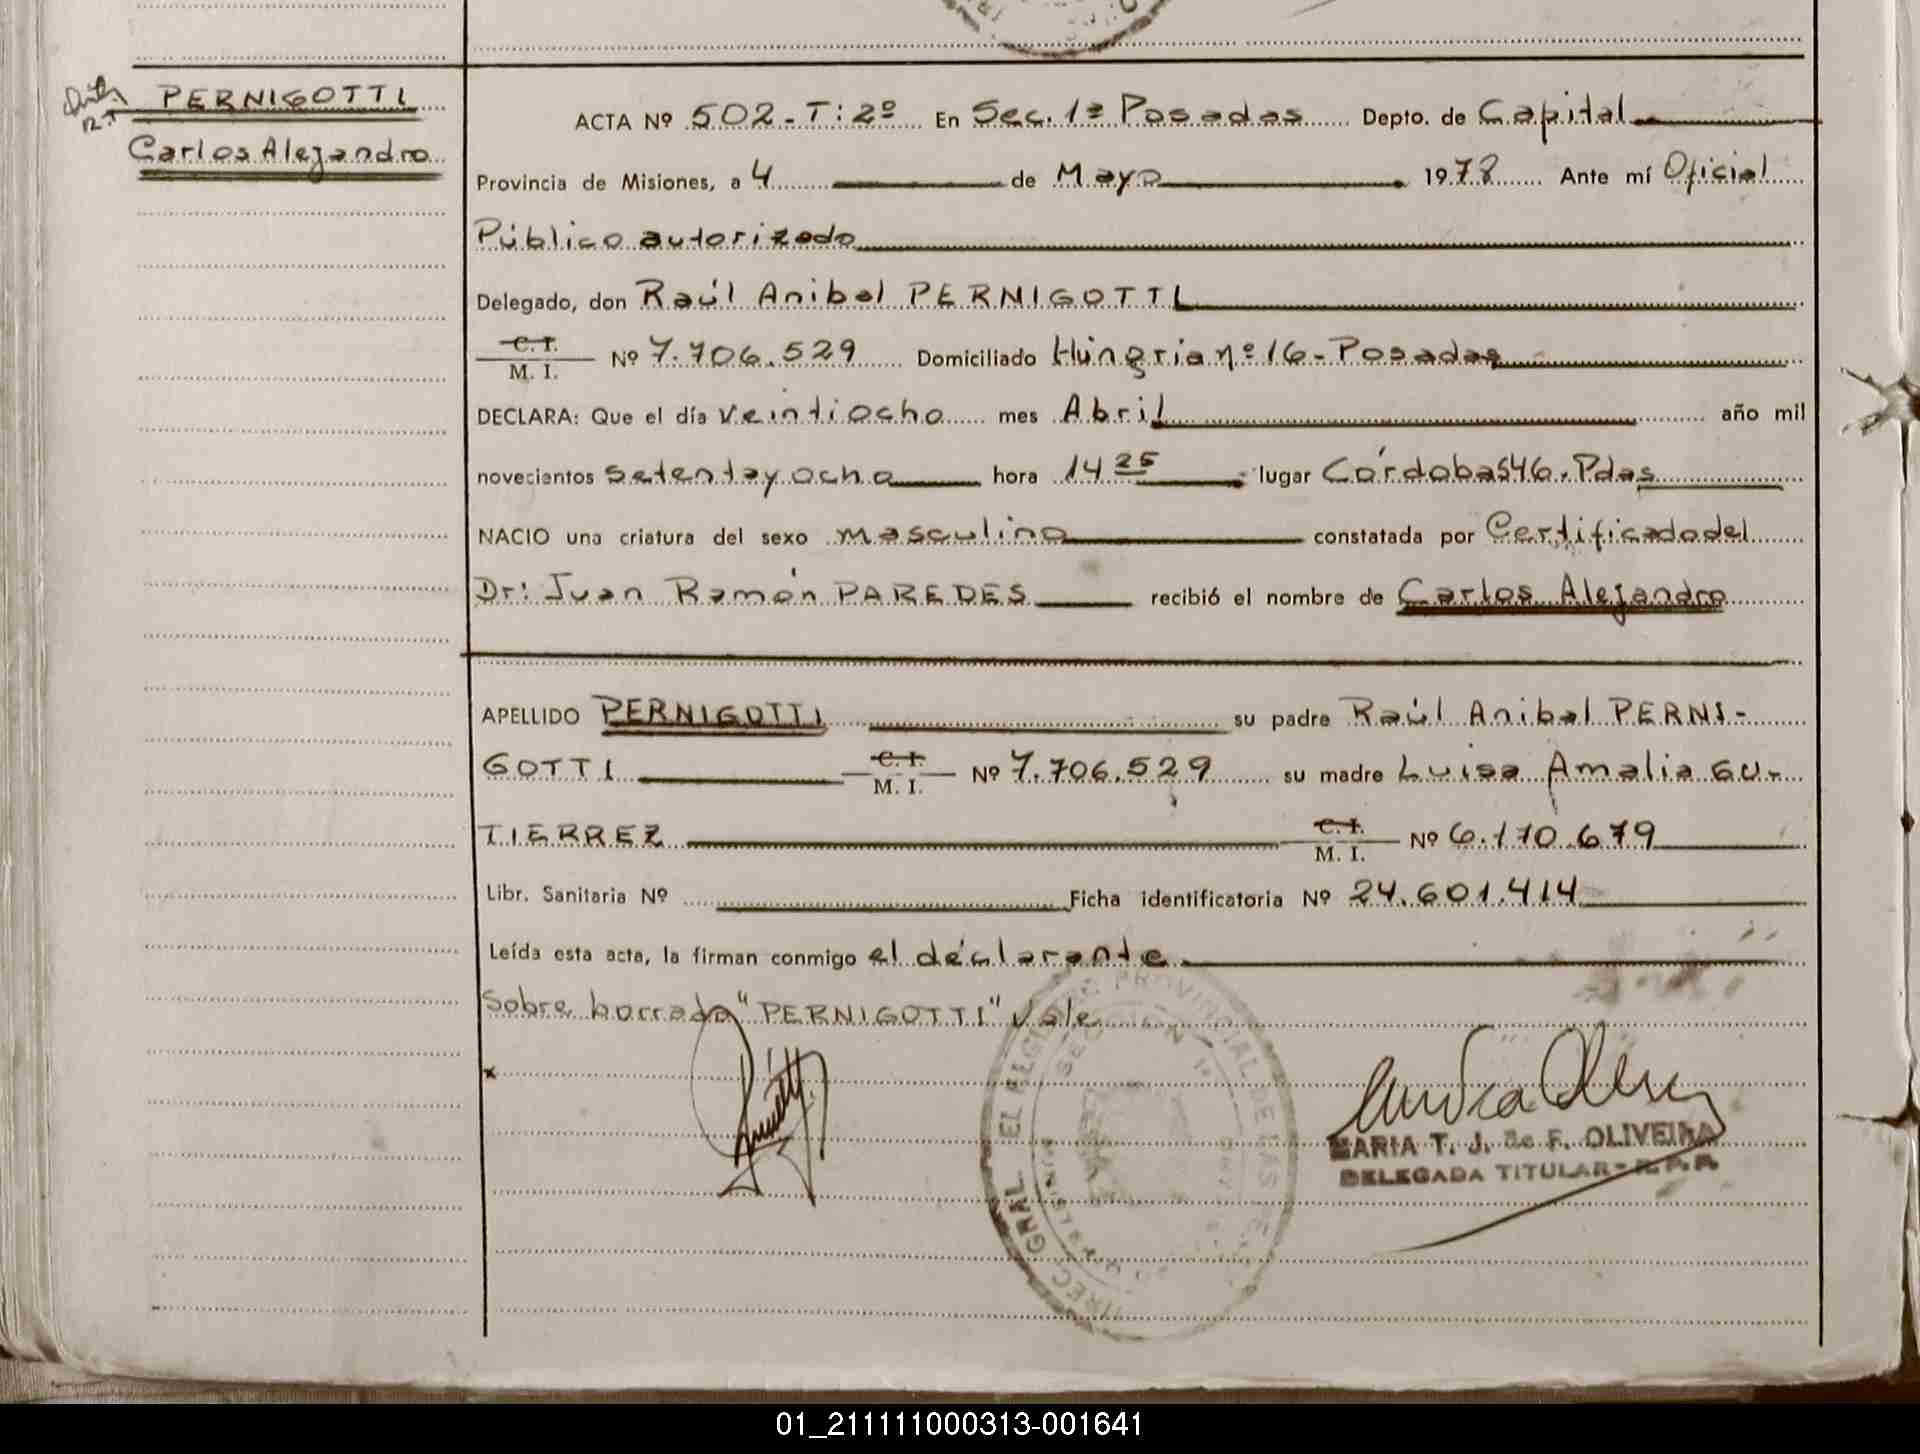 PERNIGOTTI
Carlos Alejandro
ACTA Nº 502 - T: 2º En Sec. 1ª Posadas Depto. de Capital
Provincia de Misiones, a 4 de Mayo 1978 Ante mí Oficial
Público autorizado
Delegado, don Raúl Anibal PERNIGOTTI
C. I.
M. I. Nº 7.706.529 Domiciliado Hungria nº 16 - Posadas
DECLARA: Que el día veintiocho mes Abril año mil
novecientos setenta y ocho hora 14 25 lugar Córdoba 546. Pdas
NACIO una criatura del sexo masculino constatada por Certificado del
Dr: Juan Ramón PAREDES recibió el nombre de Carlos Alejandro
APELLIDO PERNIGOTTI su padre Raúl Anibal PERNI-
GOTTI C. I. M. I. Nº 7.706.529 su madre Luisa Amalia GU-
TIERREZ C. I. M. I. Nº 6.170.679
Libr. Sanitaria Nº Ficha identificatoria Nº 24.601.414
Leída esta acta, la firman conmigo el declarante
Sobre borrado "PERNIGOTTI" Vale
x
MARIA T. J. de F. OLIVEIRA
DELEGADA TITULAR - R.P.P.
PROVINCIAL DE LAS
GRAL
01_211111000313-001641